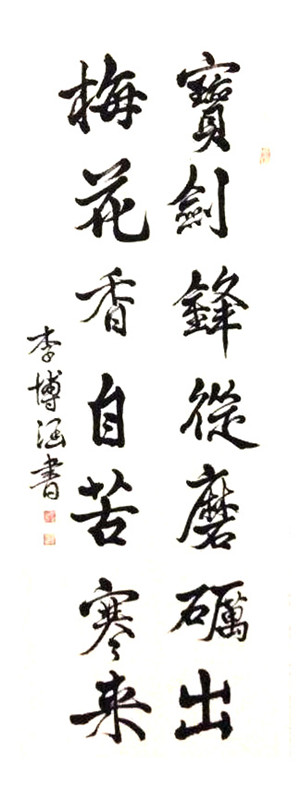 寶劍鋒從磨礪出
梅花香自苦寒來
李博涵書